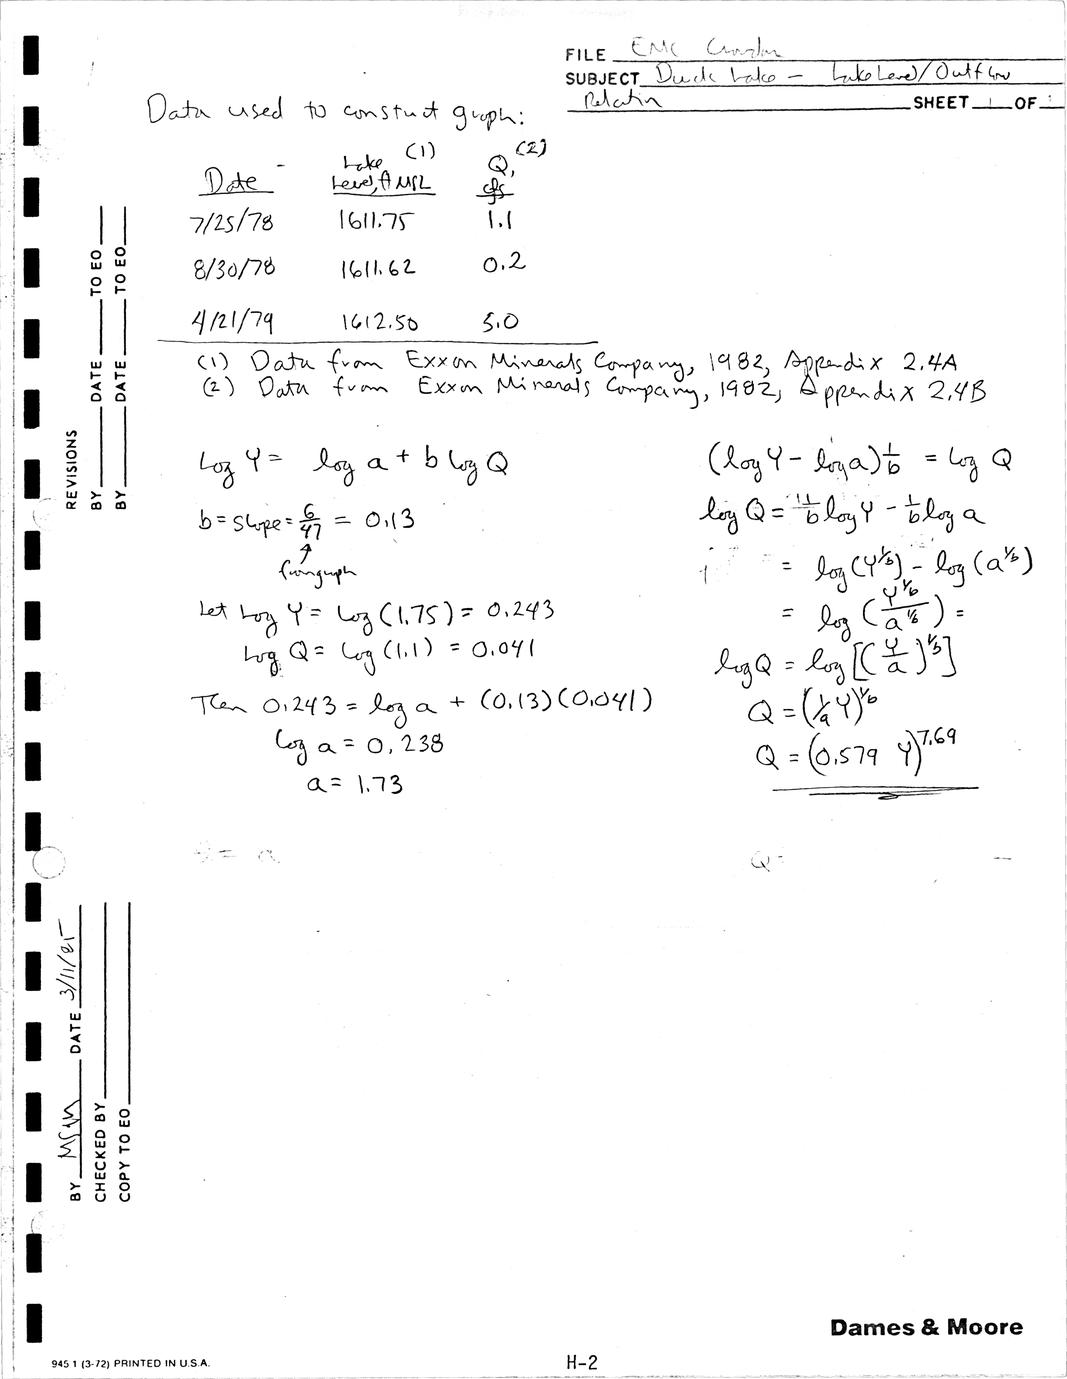 FILE EMC Crandon
SUBJECT Duck Lake - Lake Level/Outflow
Relation SHEET 1 OF
Data used to constuct graph:
Date Lake Level, ft MSL (1) Q, cfs (2)
7/25/78 1611.75 1.1
8/30/78 1611.62 0.2
4/21/79 1612.50 5.0
(1) Data from Exxon Minerals Company, 1982, Appendix 2.4A
(2) Data from Exxon Minerals Company, 1982, Appendix 2.4B
Log Y = log a + b log Q
b = slope = 6/47 = 0.13
↑
from graph
Let Log Y = Log (1.75) = 0.243
Log Q = Log (1.1) = 0.041
Then 0.243 = log a + (0.13)(0.041)
Log a = 0.238
a = 1.73
(log Y - log a) 1/b = log Q
log Q = 1/b log Y - 1/b log a
= log (Y^1/b) - log (a^1/b)
= log (Y^1/b / a^1/b) =
log Q = log [(Y/a)^1/b]
Q = (1/a Y)^1/b
Q = (0.579 Y)^7.69
REVISIONS
BY DATE TO EO
BY DATE TO EO
BY DATE 3/11/85
CHECKED BY
COPY TO EO
Dames & Moore
945 1 (3-72) PRINTED IN U.S.A.
H-2